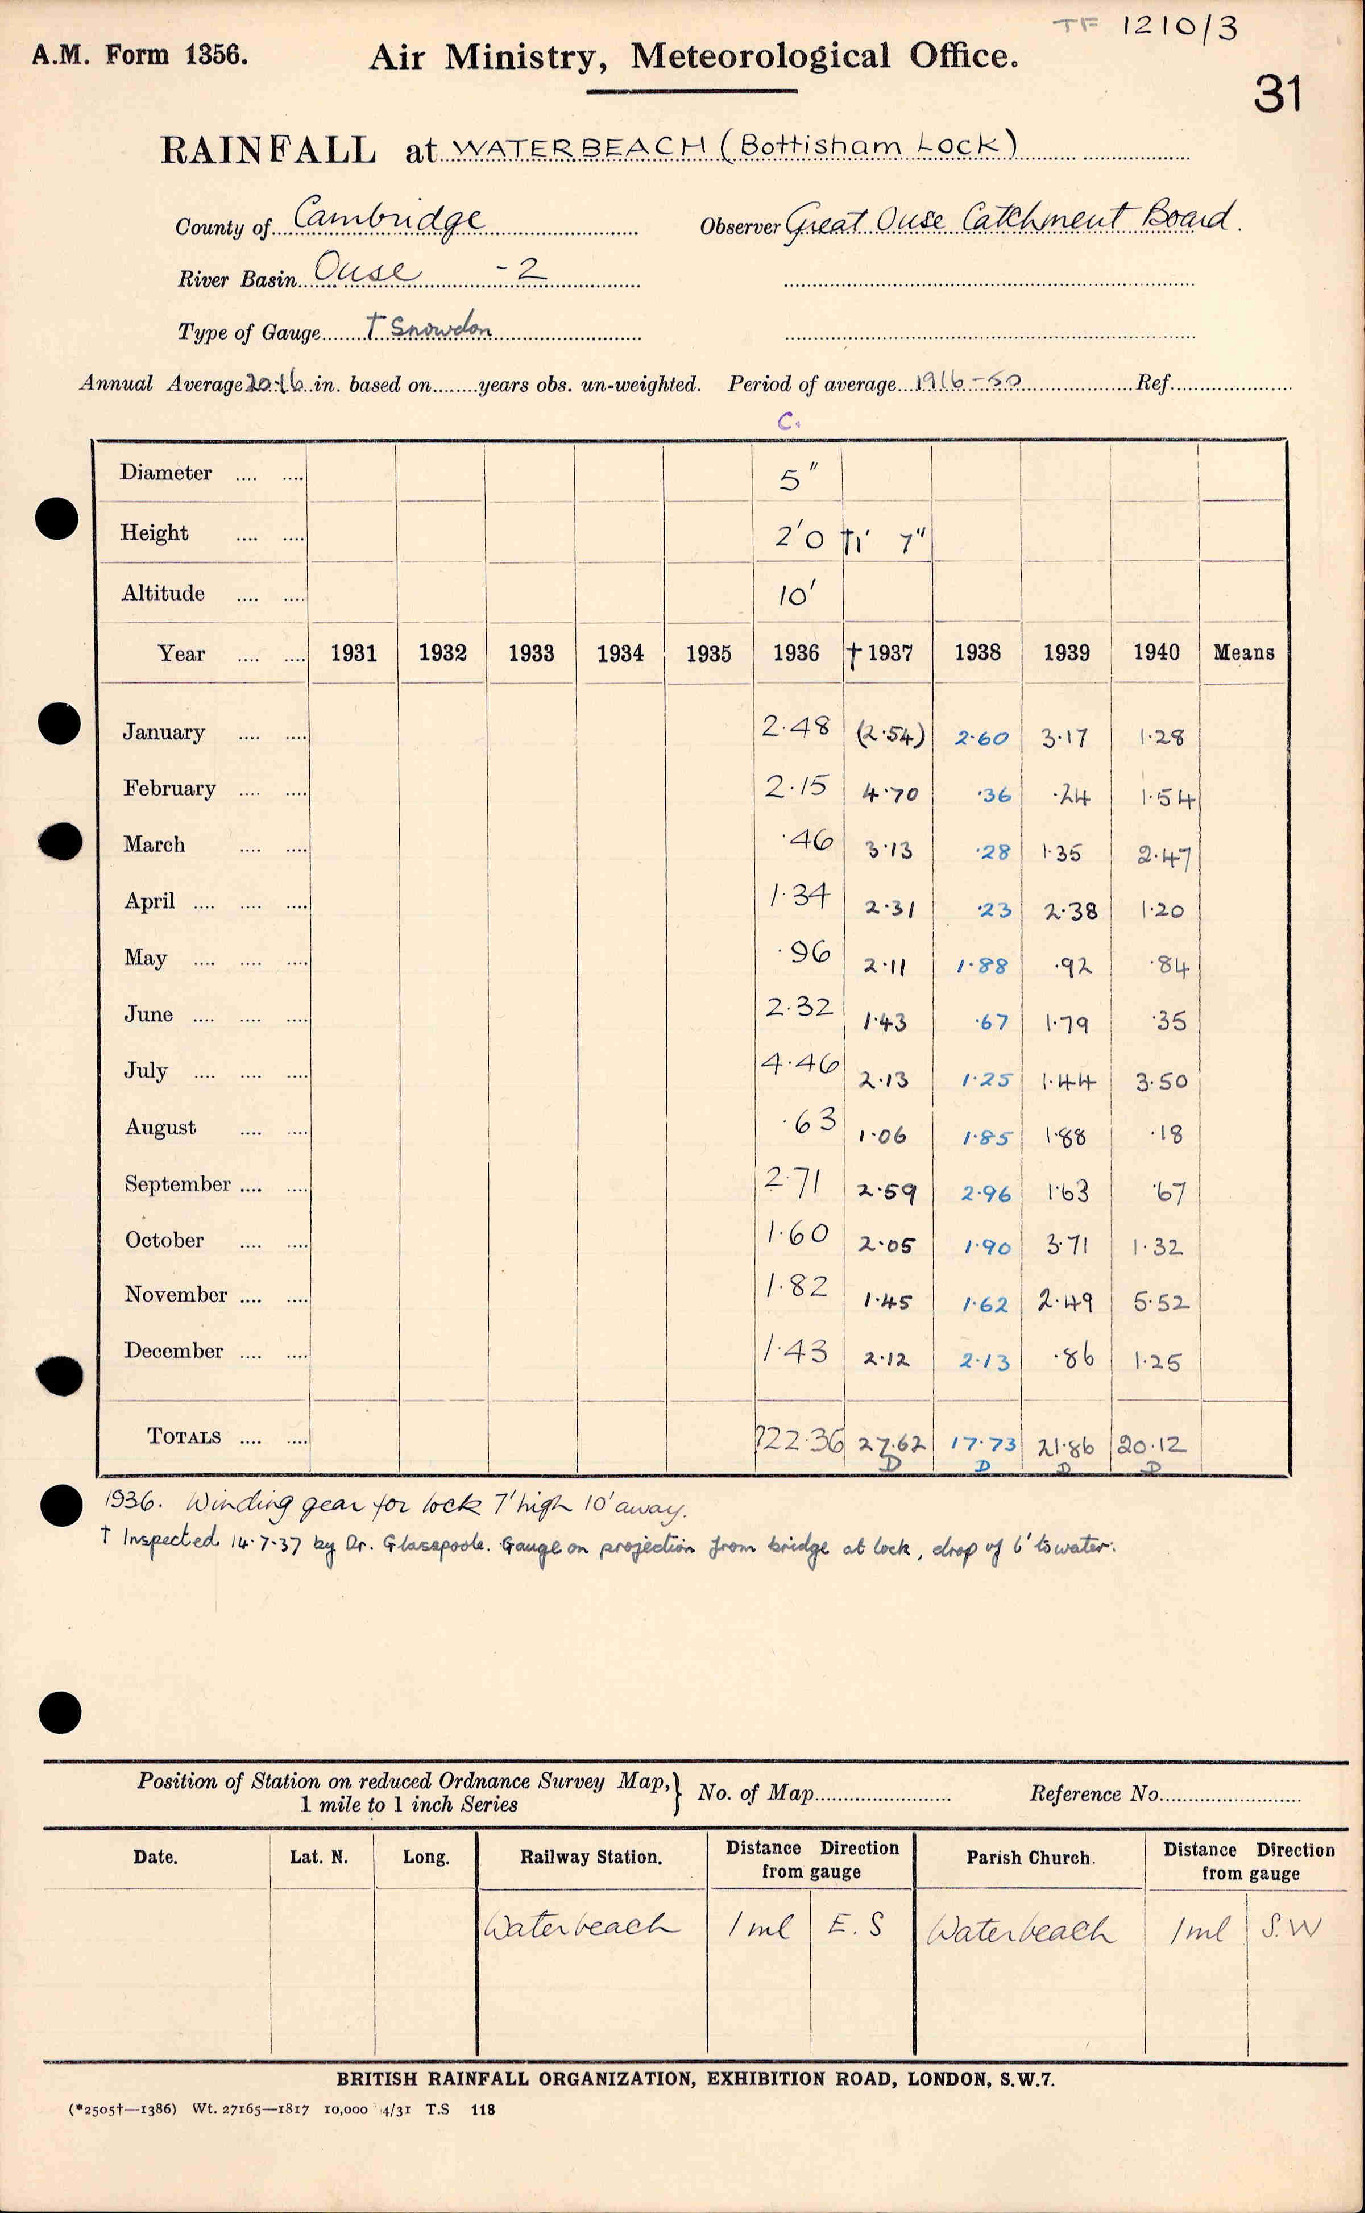 TF 1210/3
A.M. Form 1356. Air Ministry, Meteorological Office.
31
RAINFALL at WATERBEACH (Bottisham Lock)
County of Cambridge Observer Great Ouse Catchment Board.
River Basin Ouse -2
Type of Gauge † Snowdon
Annual Average 20.16 in. based on years obs. un-weighted. Period of average 1916-50 Ref.
C.
Diameter 5"
Height 2'0 †1' 7"
Altitude 10'
Year 1931 1932 1933 1934 1935 1936 †1937 1938 1939 1940 Means
January 2.48 (2.54) 2.60 3.17 1.28
February 2.15 4.70 .36 .24 1.54
March .46 3.13 .28 1.35 2.47
April 1.34 2.31 .23 2.38 1.20
May .96 2.11 1.88 .92 .84
June 2.32 1.43 .67 1.79 .35
July 4.46 2.13 1.25 1.44 3.50
August .63 1.06 1.85 1.88 .18
September 2.71 2.59 2.96 1.63 .67
October 1.60 2.05 1.90 3.71 1.32
November 1.82 1.45 1.62 2.49 5.52
December 1.43 2.12 2.13 .86 1.25
TOTALS ?22.36 27.62 17.73 21.86 20.12
D D D D
1936. Winding gear for lock 7' high 10' away.
† Inspected 14.7.37 by Dr. Glasspoole. Gauge on projection from bridge at lock, drop of 6' to water.
Position of Station on reduced Ordnance Survey Map, } No. of Map Reference No.
1 mile to 1 inch Series
Date. Lat. N. Long. Railway Station. Distance Direction from gauge Parish Church. Distance Direction from gauge
Waterbeach 1 ml E. S Waterbeach 1 ml S.W
BRITISH RAINFALL ORGANIZATION, EXHIBITION ROAD, LONDON, S.W.7.
(*2505†—1386) Wt. 27165—1817 10,000 4/31 T.S 118